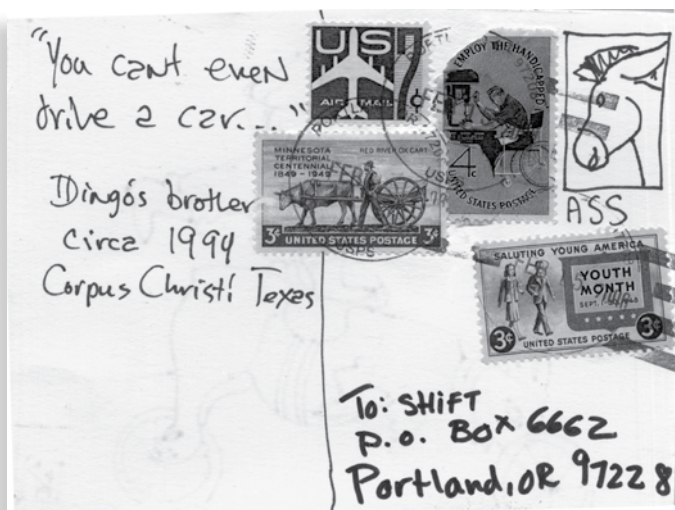 "You can't even
drive a car..."
Dingo's brother
circa 1994
Corpus Christi Texas
US
AIR MAIL
¢
EMPLOY THE HANDICAPPED
4c
UNITED STATES POSTAGE
MINNESOTA
TERRITORIAL
CENTENNIAL
1849-1949
RED RIVER OX CART
3¢ UNITED STATES POSTAGE 3¢
USPS
ASS
SALUTING YOUNG AMERICA
YOUTH
MONTH
3¢ 3¢
UNITED STATES POSTAGE
To: SHiFT
P.O. BOX 6662
Portland, OR 97228